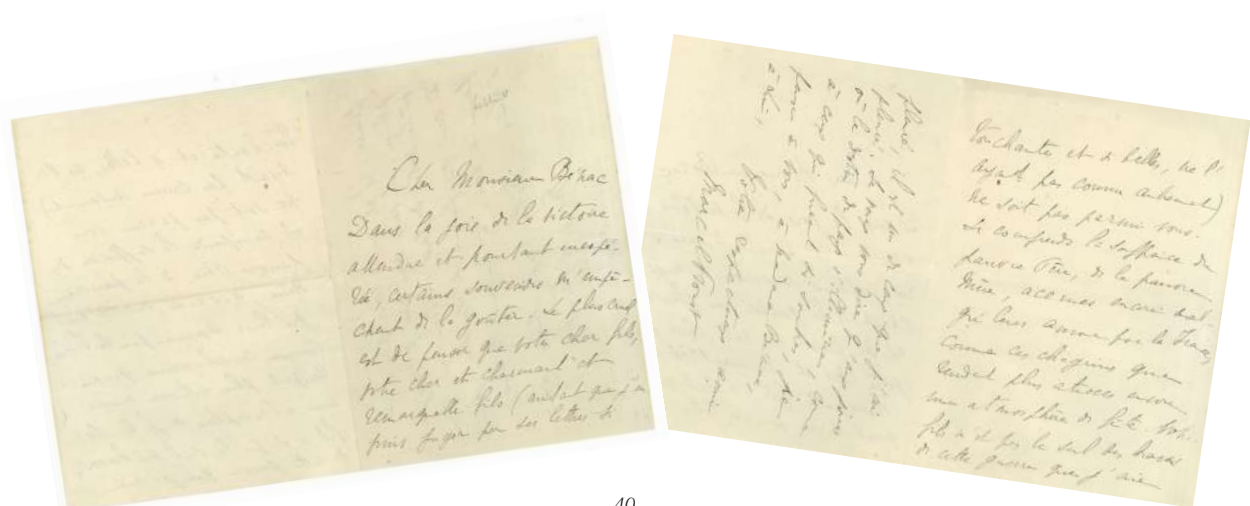 Cher Monsieur Bénac
Dans la joie de la victoire
attendue et pourtant inespé-
rée, certains souvenirs m'empê-
chent de la goûter. Le plus cruel
est de penser que votre cher fils,
votre cher et charmant et
remarquable fils (autant que j'en
puis juger par ses lettres si
touchantes et si belles, ne l'
ayant pas connu autrement)
ne soit pas parmi nous.
Je comprends la souffrance du
pauvre Père, de la pauvre
Mère, accrues encore malgré
leur amour pour la France,
comme ces chagrins que
rendent plus atroces encore
une atmosphère de fête. Votre
fils n'est pas le seul des héros
de cette guerre que j'aie
pleuré, il est un de ceux que j'ai
le plus pleuré. Je
à ceux qui furent
à vous, à Madame Bénac,
à lui,
Votre respectueux ami
Marcel Proust
40